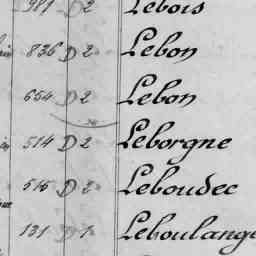 981 D 2 Lebois
836 D 2 Lebon
654 D 2 Lebon
514 D 2 Leborgne
515 D 2 Leboudec
131 D 1 Leboulange